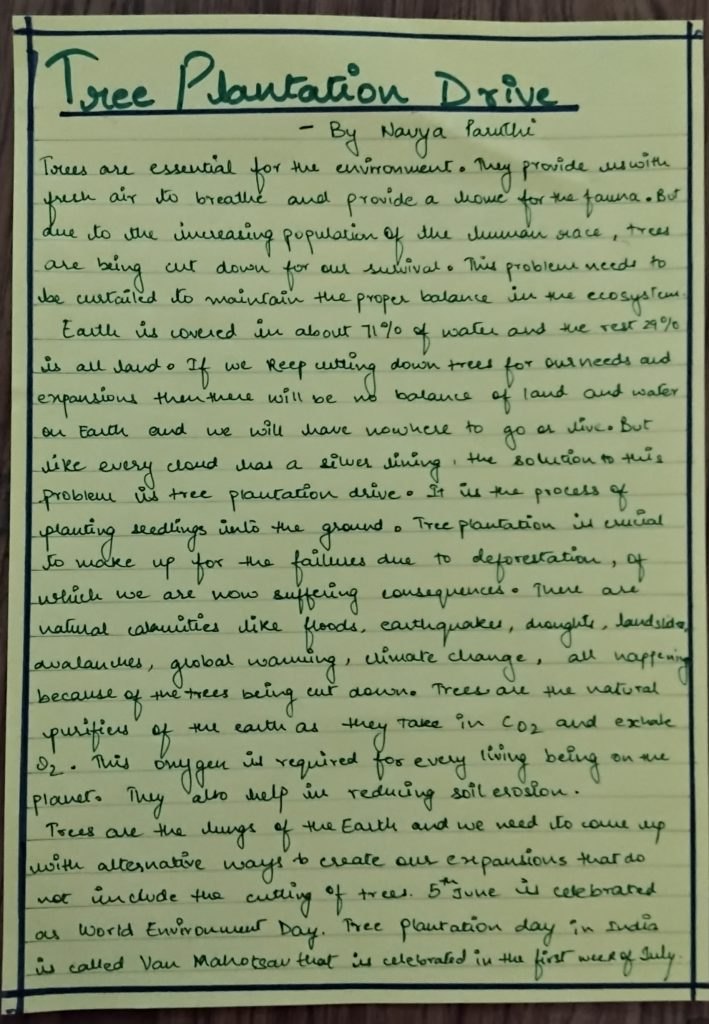 Tree Plantation Drive
- By Navya Paruthi
Trees are essential for the environment. They provide us with
fresh air to breathe and provide a home for the fauna. But
due to the increasing population of the human race, trees
are being cut down for our survival. This problem needs to
be curtailed to maintain the proper balance in the ecosystem.
Earth is covered in about 71% of water and the rest 29%
is all land. If we keep cutting down trees for our needs and
expansions then there will be no balance of land and water
on Earth and we will have nowhere to go or live. But
like every cloud has a silver lining, the solution to this
problem is tree plantation drive. It is the process of
planting seedlings into the ground. Tree plantation is crucial
to make up for the failures due to deforestation, of
which we are now suffering consequences. There are
natural calamities like floods, earthquakes, droughts, landslides,
avalanches, global warming, climate change, all happening
because of the trees being cut down. Trees are the natural
purifiers of the earth as they take in CO2 and exhale
O2. This oxygen is required for every living being on the
planet. They also help in reducing soil erosion.
Trees are the lungs of the Earth and we need to come up
with alternative ways to create our expansions that do
not include the cutting of trees. 5th June is celebrated
as World Environment Day. Tree plantation day in India
is called Van Mahotsav that is celebrated in the first week of July.